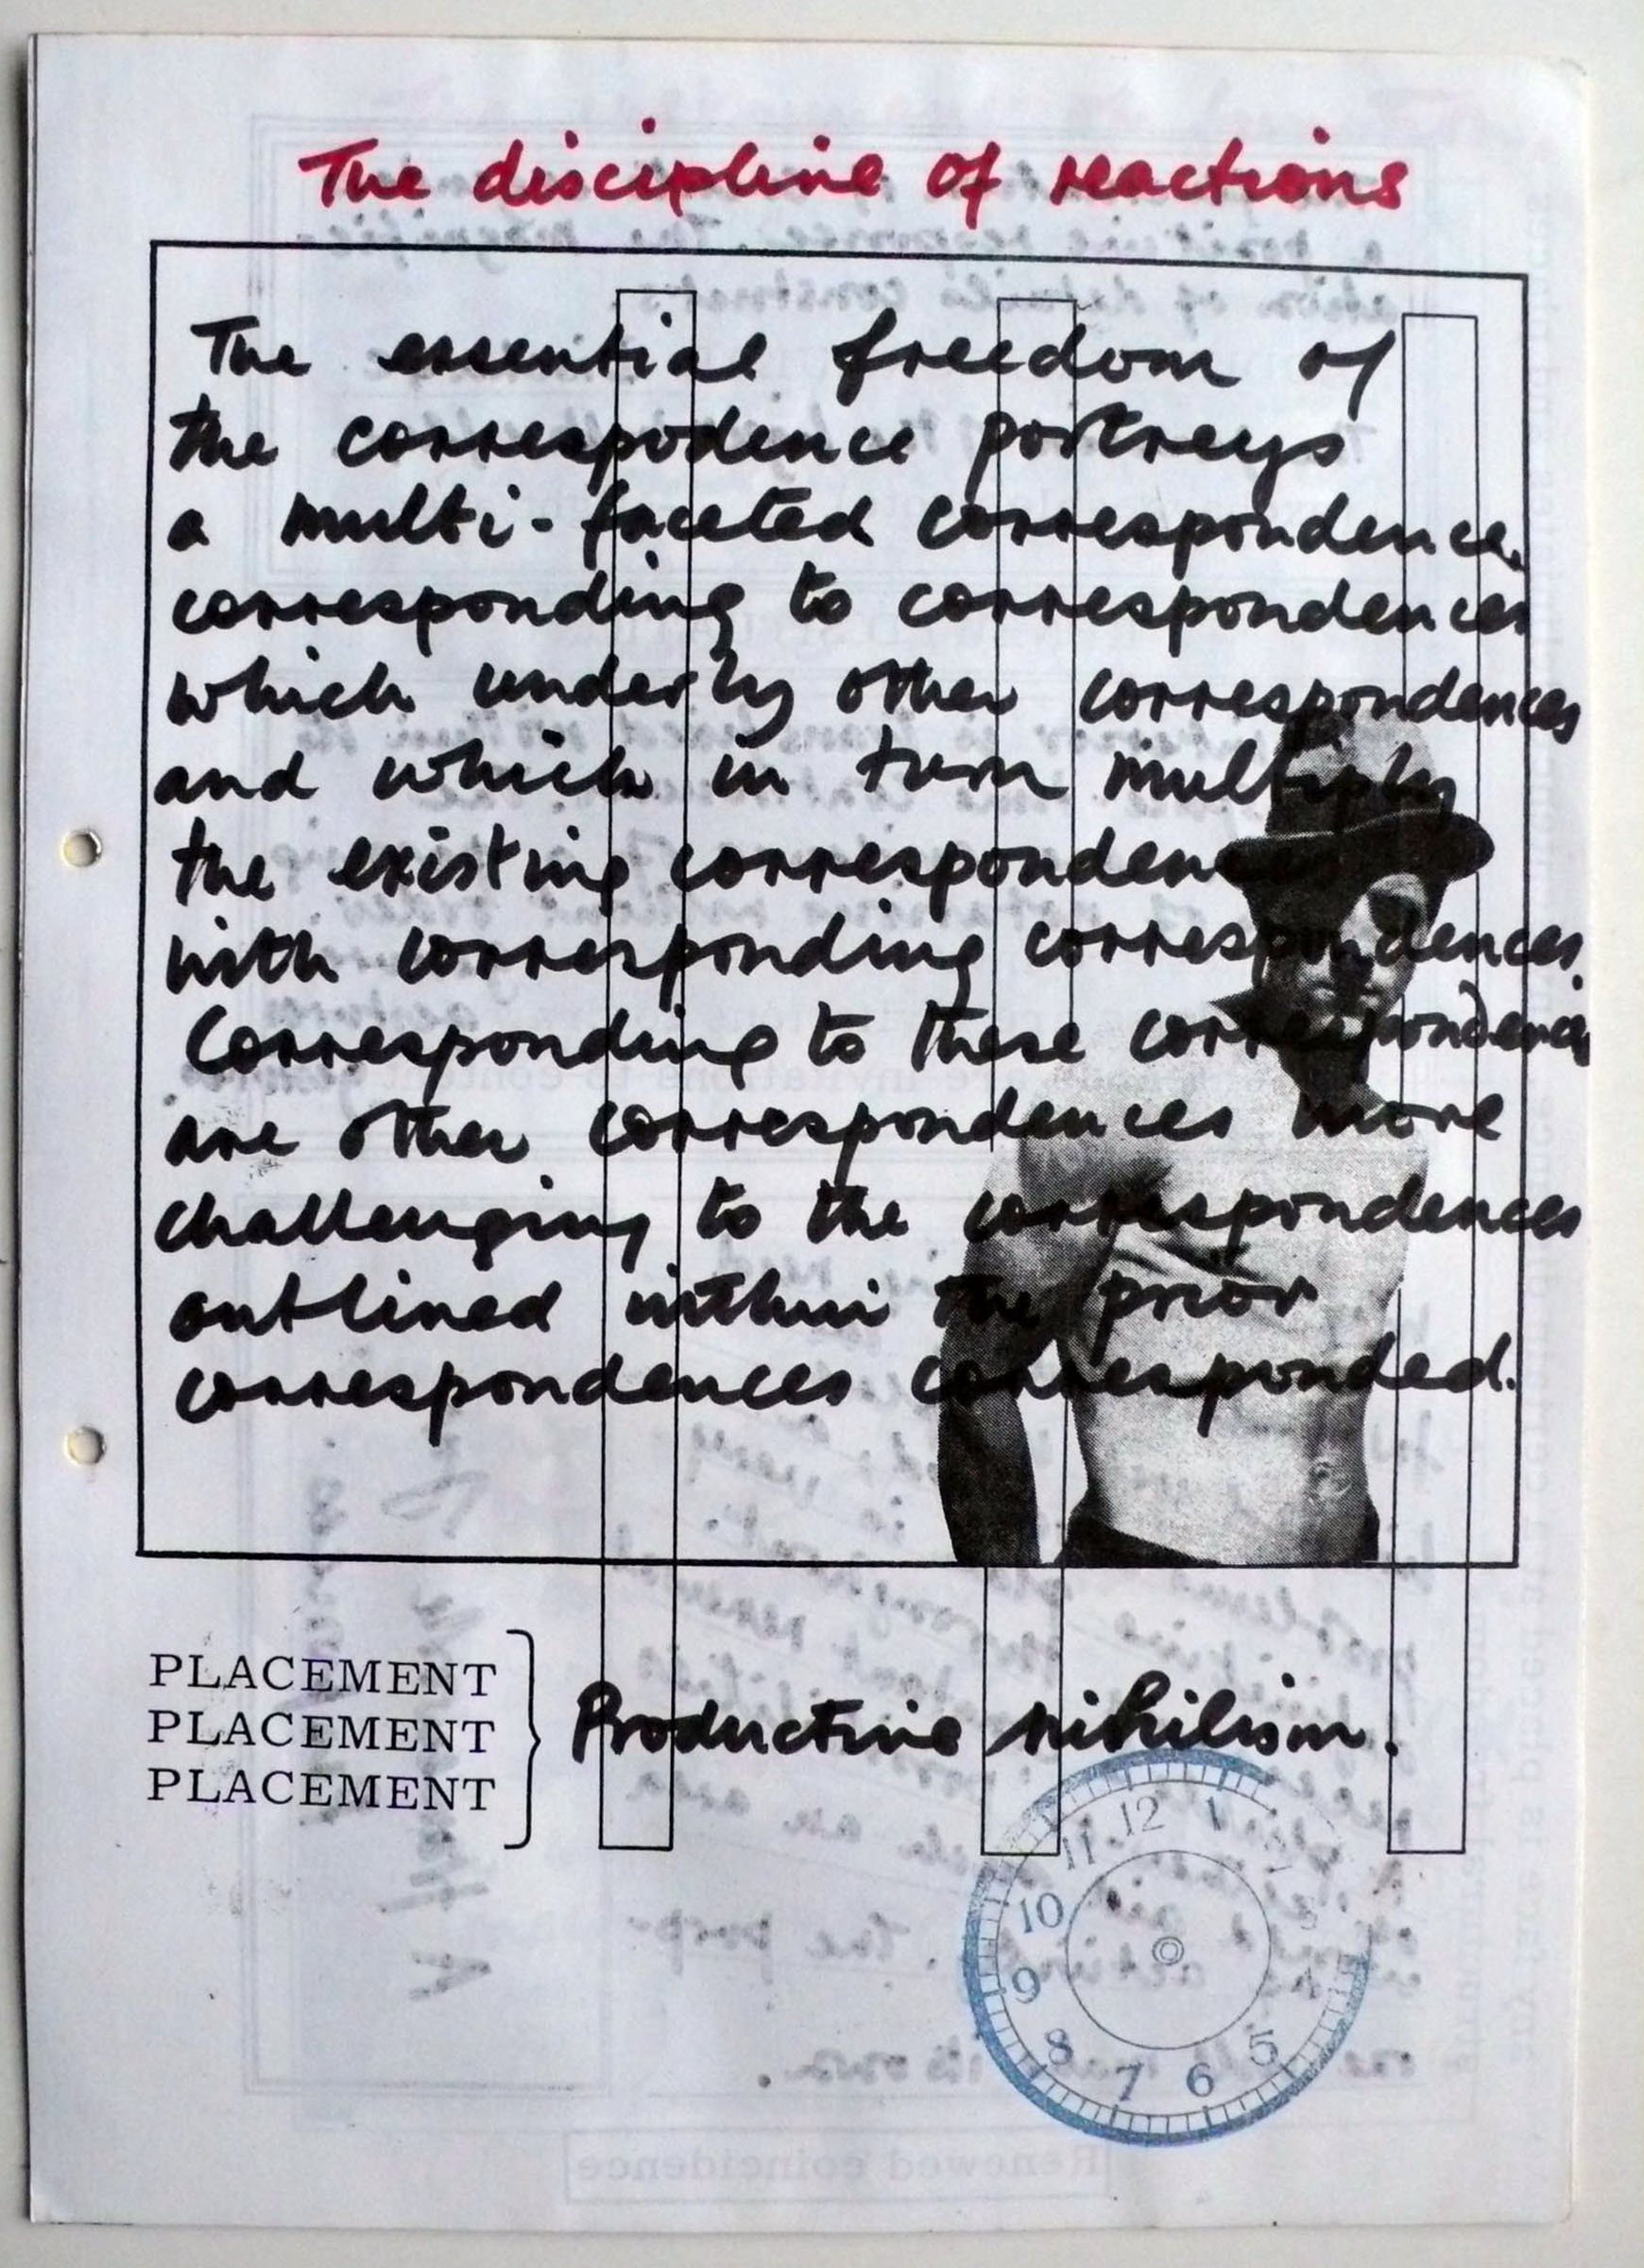 The discipline of reactions
The essential freedom of
the correspodence portreys
a multi-faceted correspondence
corresponding to correspondences
which underly other correspondences
and which in turn multiply
the existing corresponden
with corresponding correspondences.
Corresponding to these correspondences
are other correspondences more
challenging to the correspondences
outlined within the prior
correspondences corresponded.
PLACEMENT
PLACEMENT
PLACEMENT
Productive nihilism.
12 1
11
10
9 4
8 5
7 6
Renewed coincidence